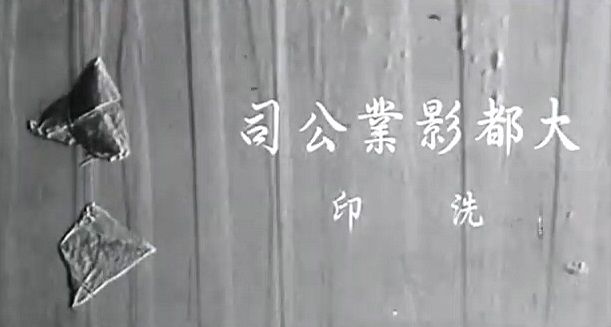 大都影業公司
洗印